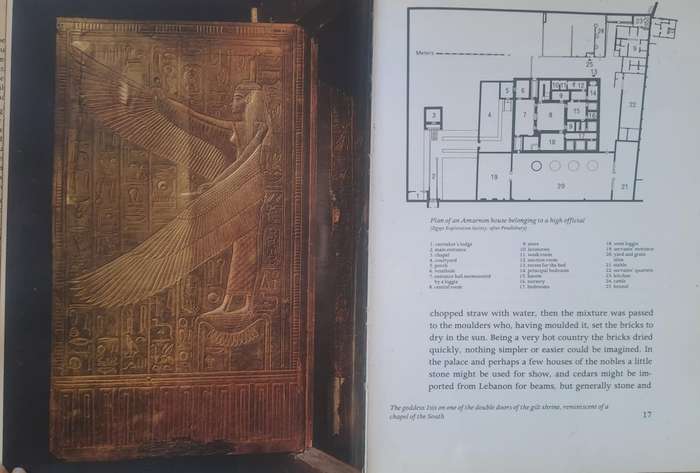 Meters
25
24
13
9
5
6
10 11 4 12
9
14
3
4
7
8
15
16
22
9
17
18
2
19
20
21
1
Plan of an Amarnan house belonging to a high official
(Egypt Exploration Society, after Pendlebury)
1. caretaker's lodge
2. main entrance
3. chapel
4. courtyard
5. porch
6. vestibule
7. entrance hall surmounted
by a loggia
8. central room
9. stores
10. lavatories
11. wash-room
12. room
13. recess for the bed
14. principal bedroom
15. harem
16. nursery
17. bedrooms
18. west loggia
19. servants' entrance
20. yard and grain
silos
21. stable
22. servants' quarters
23. kitchen
24. cattle
25. kennel
chopped straw with water, then the mixture was passed
to the moulders who, having moulded it, set the bricks to
dry in the sun. Being a very hot country the bricks dried
quickly, nothing simpler or easier could be imagined. In
the palace and perhaps a few houses of the nobles a little
stone might be used for show, and cedars might be im-
ported from Lebanon for beams, but generally stone and
The goddess Isis on one of the double doors of the gilt shrine, reminiscent of a
chapel of the South
17